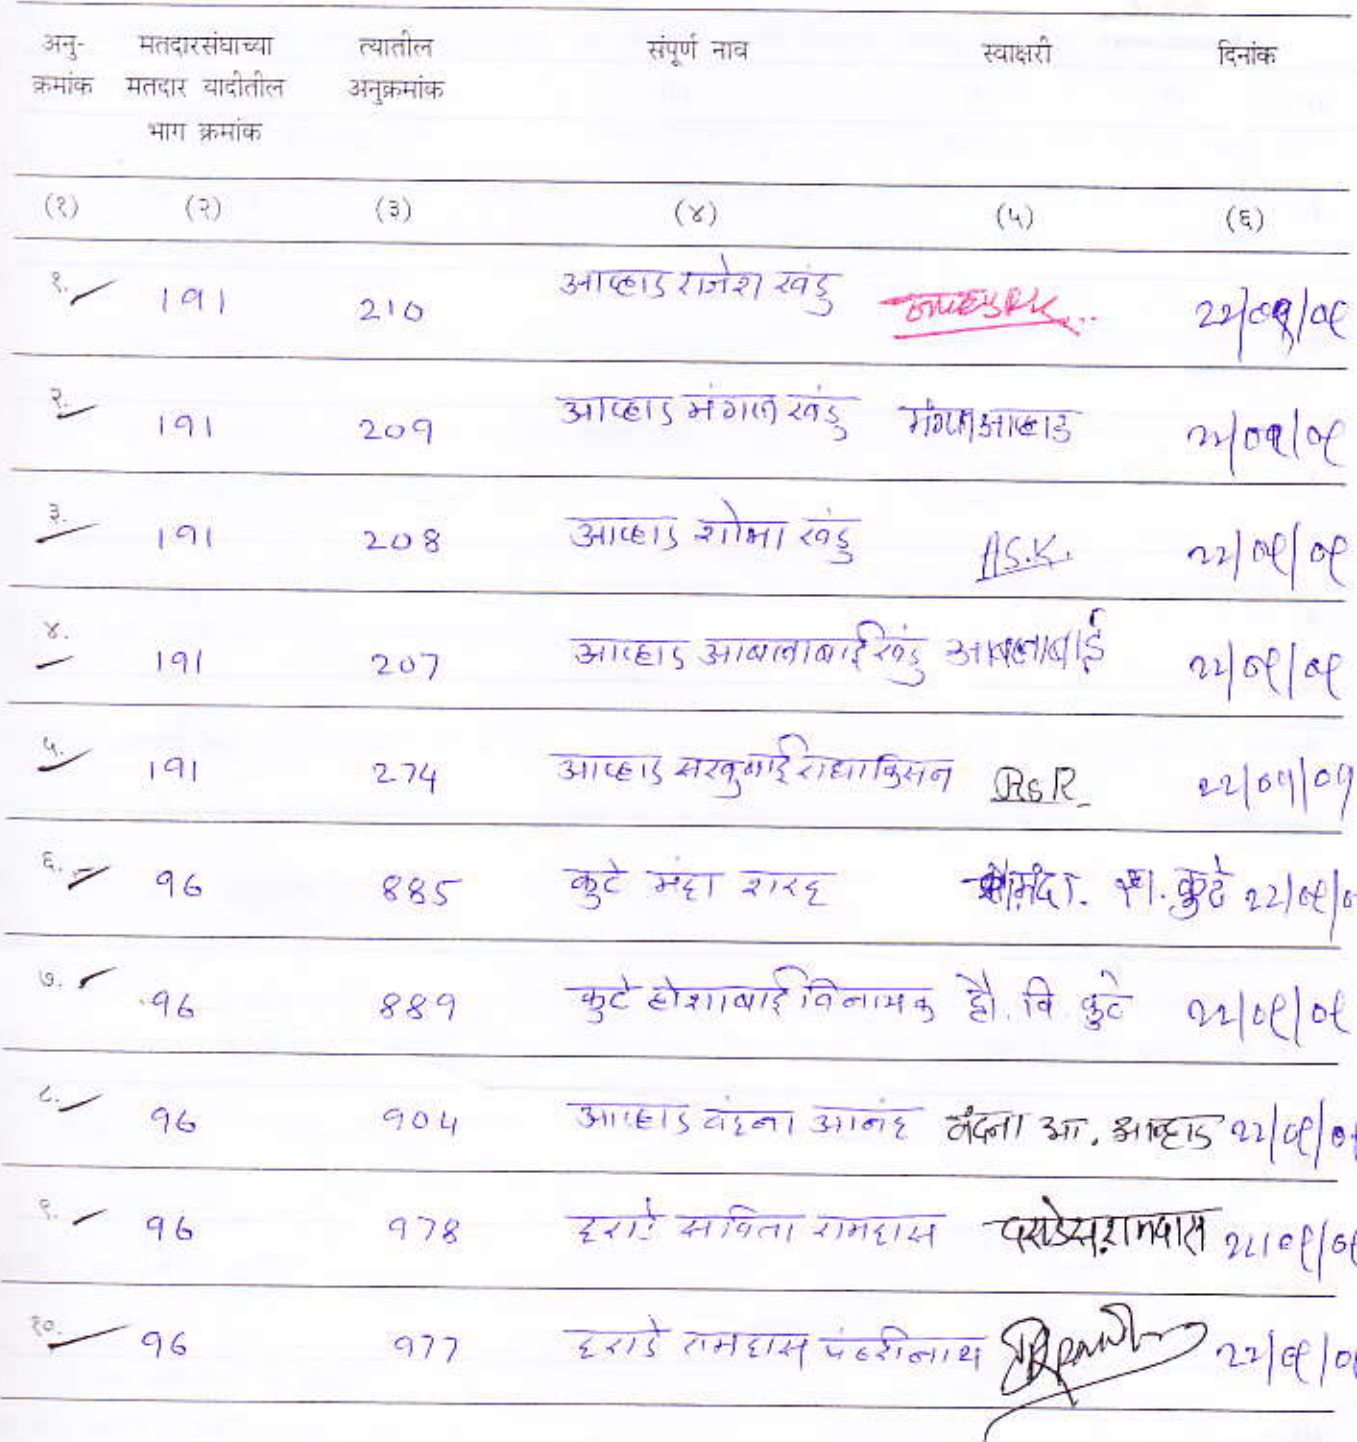 अनु- मतदारसंघाच्या त्यातील संपूर्ण नाव स्वाक्षरी दिनांक
क्रमांक मतदार यादीतील अनुक्रमांक
भाग क्रमांक
(१) (२) (३) (४) (५) (६)
१. 191 210 आव्हाड राजेश खंडु 22/09/09
२. 191 209 आव्हाड मंगल खंडु मंगल आव्हाड 22/09/09
३. 191 208 आव्हाड शोभा खंडु A.S.K. 22/09/09
४. 191 207 आव्हाड आबलाबाई खंडु आबलाबाई 22/09/09
५. 191 274 आव्हाड सरखुबाई राधाकिसन 22/09/09
६. 96 885 कुटे मंदा शरद मंदा. श. कुटे 22/09/0
७. 96 889 कुटे होशाबाई विनायक हौ. वि. कुटे 22/09/09
८. 96 904 आव्हाड वंदना आनंद वंदना आ. आव्हाड 22/09/0
९. 96 978 दराडे सविता रामदास दराडे स. रामदास 22/09/09
१०. 96 977 दराडे रामदास पंढरीनाथ 22/09/0